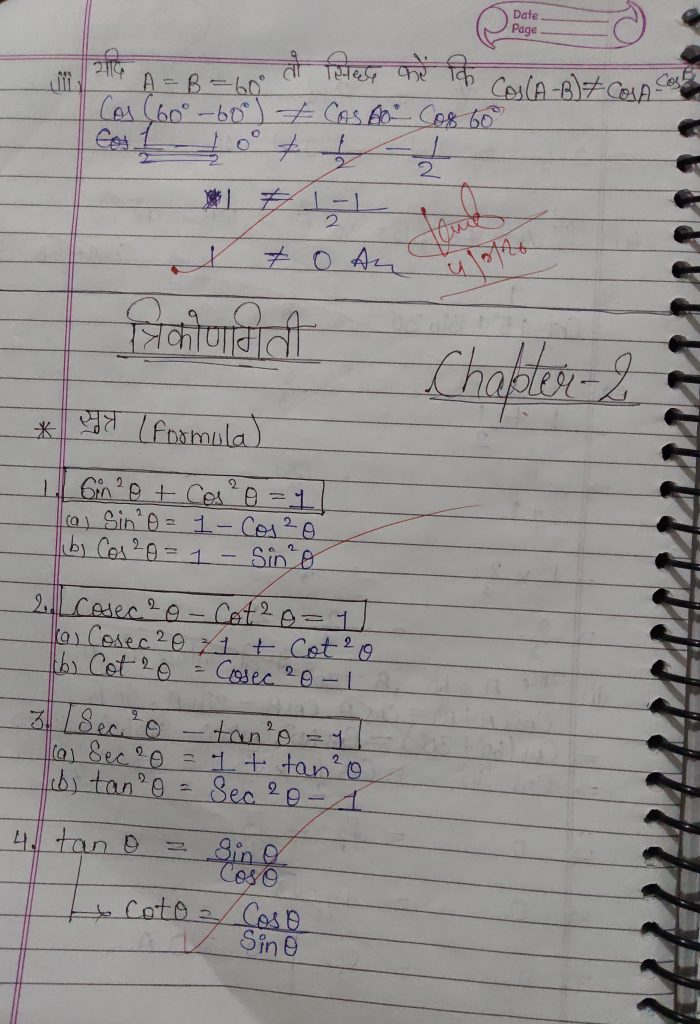 Date
Page
iii, यदि A = B = 60° तो सिद्ध करें कि Cos(A-B) ≠ CosA - CosB
Cos (60° - 60°) ≠ Cos 60° - Cos 60°
0° ≠ 1/2 - 1/2
1 ≠ 1-1/2
1 ≠ 0 An
त्रिकोणमिती
Chapter-2
* सुत्र (Formula)
1. Sin²θ + Cos²θ = 1
(a) Sin²θ = 1 - Cos²θ
(b) Cos²θ = 1 - Sin²θ
2. Cosec²θ - Cot²θ = 1
(a) Cosec²θ = 1 + Cot²θ
(b) Cot²θ = Cosec²θ - 1
3. Sec²θ - tan²θ = 1
(a) Sec²θ = 1 + tan²θ
(b) tan²θ = Sec²θ - 1
4. tan θ = Sinθ/Cosθ
→ Cotθ = Cosθ/Sinθ